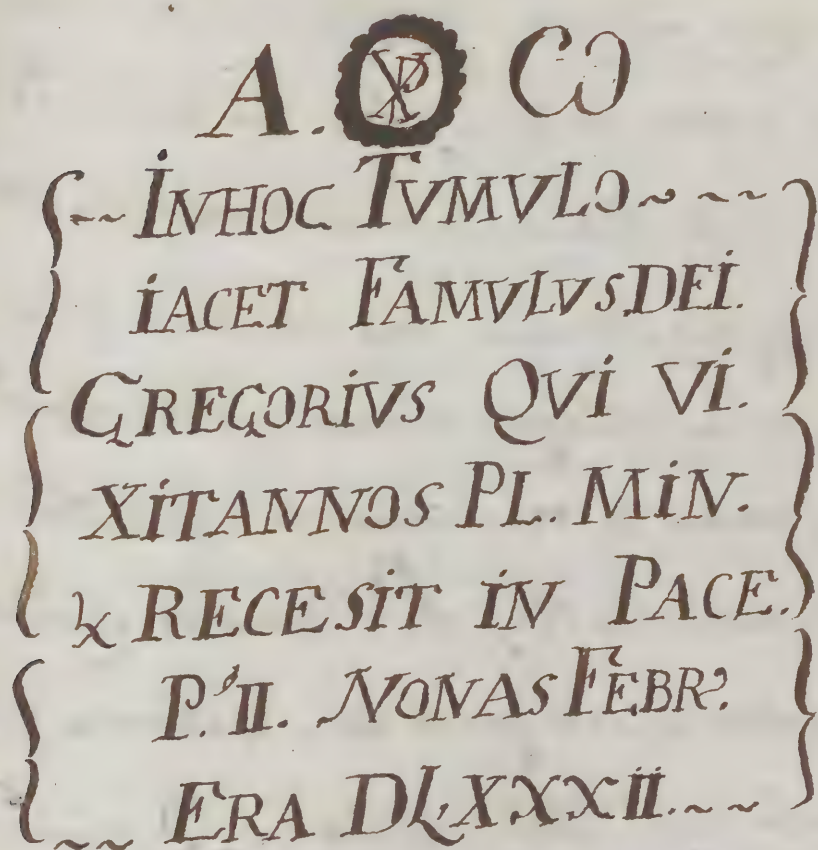 A. XP Ꞷ
~~ INHOC TVMVLO ~ ~ ~
IACET FAMVLVS DEI.
GREGORIVS QVI VI.
XITANNOS PL. MIN.
LX RECESIT IN PACE.
P. II. NONAS FEBR?.
ERA DLXXXII. ~ ~